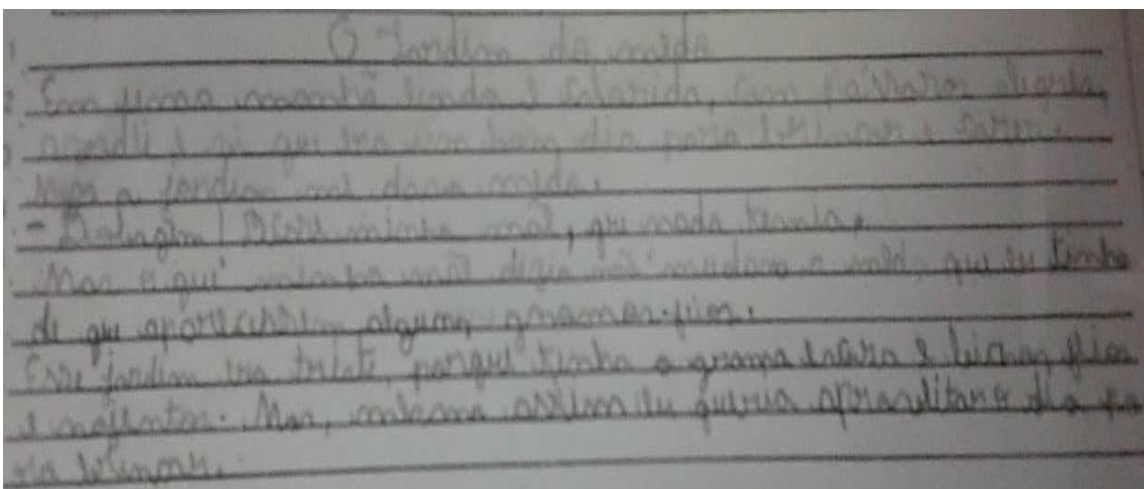 O Jardim do medo
Em uma manhã linda e colorida, com pássaros alegres,
acordei e vi que era um bom dia para brincar e correr.
Mas o jardim me dava medo.
- Bobagem! Disse minha mãe, que nada temia.
Mas o que minha mãe dizia não mudava o medo que eu tinha
de que aparecessem alguns gnomos feios.
Esse jardim era triste, porque tinha a grama escura e bichos feios
e nojentos. Mas, mesmo assim eu queria aproveitar o dia pa
ra brincar.